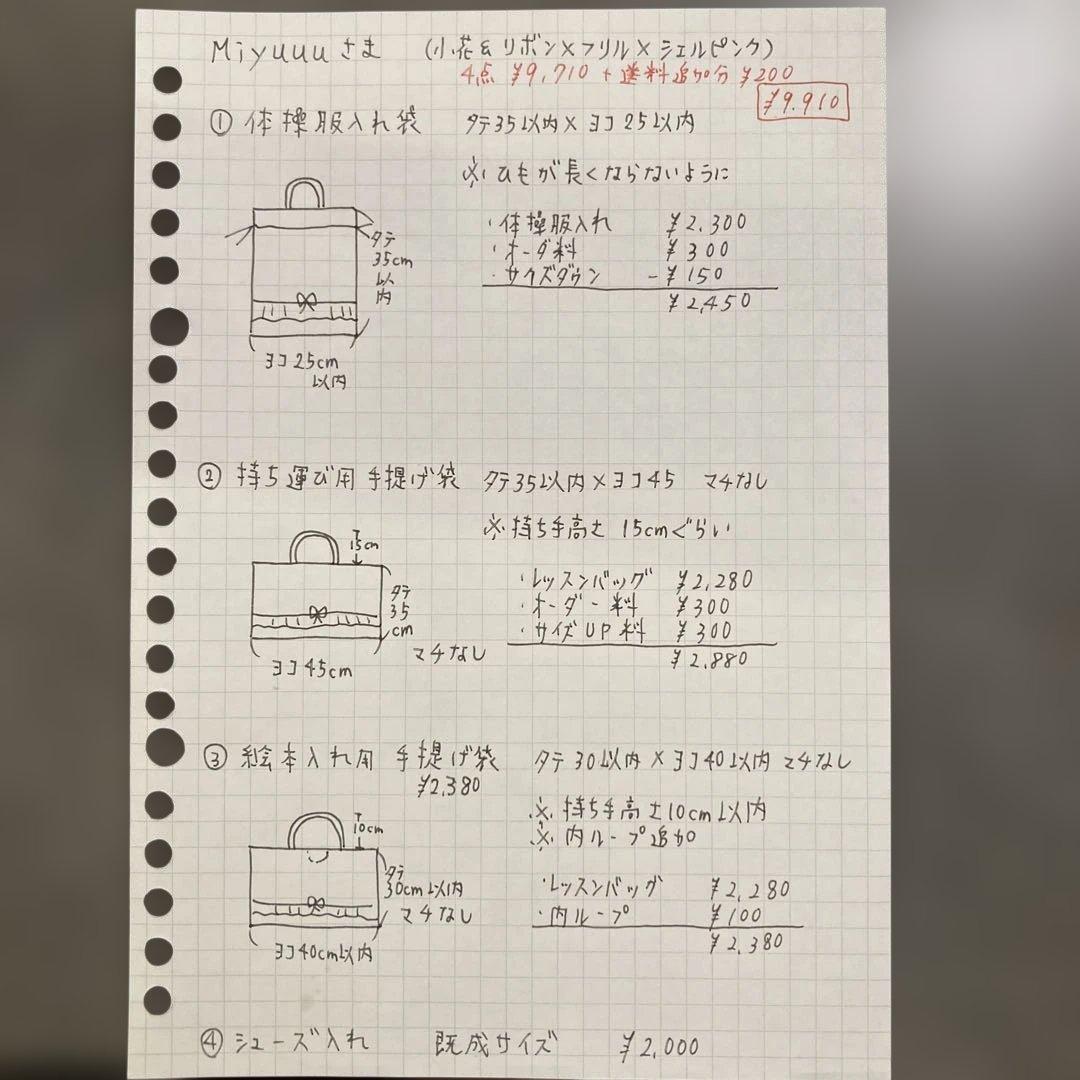 Miyuuuさま （小花＆リボン×フリル×シェルピンク）
4点 ¥9,710＋送料追加分 ¥200
¥9.910
① 体操服入れ袋 タテ35以内×ヨコ25以内
※ひもが長くならないように
タテ
35cm
以
内
・体操服入れ ¥2.300
・オーダ料 ¥300
・サイズダウン －¥150
¥2,450
ヨコ25cm
以内
② 持ち運び用手提げ袋 タテ35以内×ヨコ45 マチなし
※持ち手高さ 15cmぐらい
15cm
タテ
35
cm
・レッスンバッグ ¥2,280
・オーダー料 ¥300
・サイズUP料 ¥300
¥2.880
マチなし
ヨコ45cm
③ 絵本入れ用 手提げ袋 タテ30以内×ヨコ40以内 マチなし
¥2,380
※持ち手高さ10cm以内
※内ループ追加
10cm
タテ
30cm以内
マチなし
・レッスンバッグ ¥2,280
・内ループ ¥100
¥2,380
ヨコ40cm以内
④ シューズ入れ 既成サイズ ¥2,000